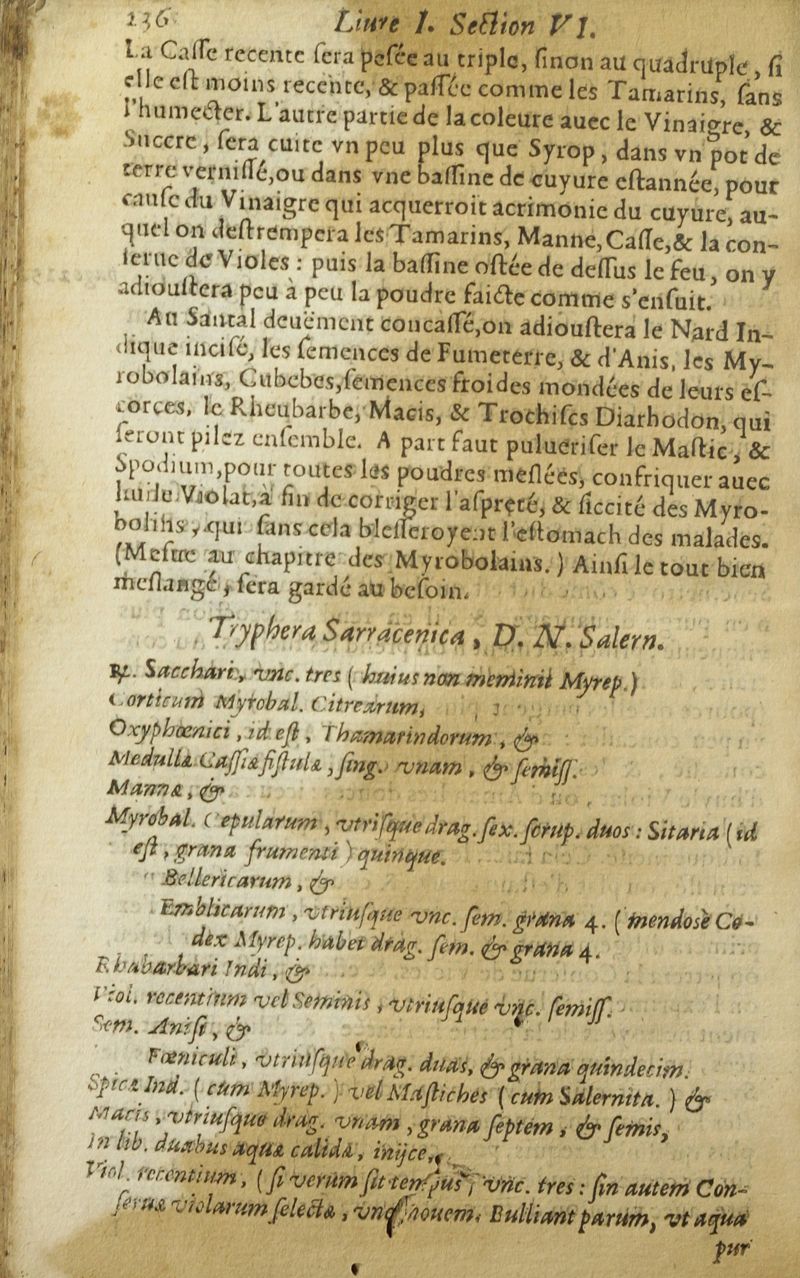 136 Liure I. Section VI.
La Casse recente sera pesée au triple, sinon au quadruple, si
elle est moins recente, & passée comme les Tamarins, sans
l'humecter. L'autre partie de la coleure auec le Vinaigre, &
Succre, sera cuite vn peu plus que Syrop, dans vn pot de
terre vernissé, ou dans vne bassine de cuyure estannée, pour
cause du Vinaigre qui acquerroit acrimonie du cuyure, au-
quel on destrempera les Tamarins, Manne, Casse, & la con-
serue de Violes : puis la bassine ostée de dessus le feu, on y
adioustera peu à peu la poudre faicte comme s'ensuit.
Au Santal deuëment concassé, on adioustera le Nard In-
dique incisé, les semences de Fumeterre, & d'Anis, les My-
robolains, Cubebes, semences froides mondées de leurs es-
corces, le Rheubarbe, Macis, & Trochisces Diarhodon, qui
seront pilez ensemble. A part faut pulueriser le Mastic, &
Spodium, pour toutes les poudres meslées, confriquer auec
huile Violat, à fin de corriger l'aspreté, & siccité des Myro-
bolins, qui sans cela blesseroyent l'estomach des malades.
(Mesue au chapitre des Myrobolains.) Ainsi le tout bien
meslangé, sera gardé au besoin.
Tryphera Sarracenica, D. N. Salern.
℞. Sacchari, vnc. tres (huius non meminit Myrep.)
Corticum Myrobal. Citrearum,
Oxyphœnici, id est, Thamarindorum, &
Medullæ Cassiæ fistulæ, sing. vnam, & semiss.
Mannæ, &
Myrobal. Cepularum, vtrisque drag. sex. scrup. duos : Sitaria (id
est, grana frumenti) quinque.
Bellericarum, &
Emblicarum, vtriusque vnc. sem. grana 4. (mendosè Co-
dex Myrep. habet drag. sem. & grana 4.
Rhabarbari Indi, &
Viol. recentium vel Seminis, vtriusque vnc. semiss.
Sem. Anisi, &
Fœniculi, vtriusque drag. duas, & grana quindecim.
Spicæ Ind. (cum Myrep.) vel Mastiches (cum Salernita.) &
Macis, vtriusque drag. vnam, grana septem, & semis,
In lib. duabus aquæ calidæ, inijce,
Viol. recentium, (si verùm sit tempus, vnc. tres : sin autem Con-
seruæ violarum selectæ, vnc. nouem. Bulliant parùm, vt aqua
pur